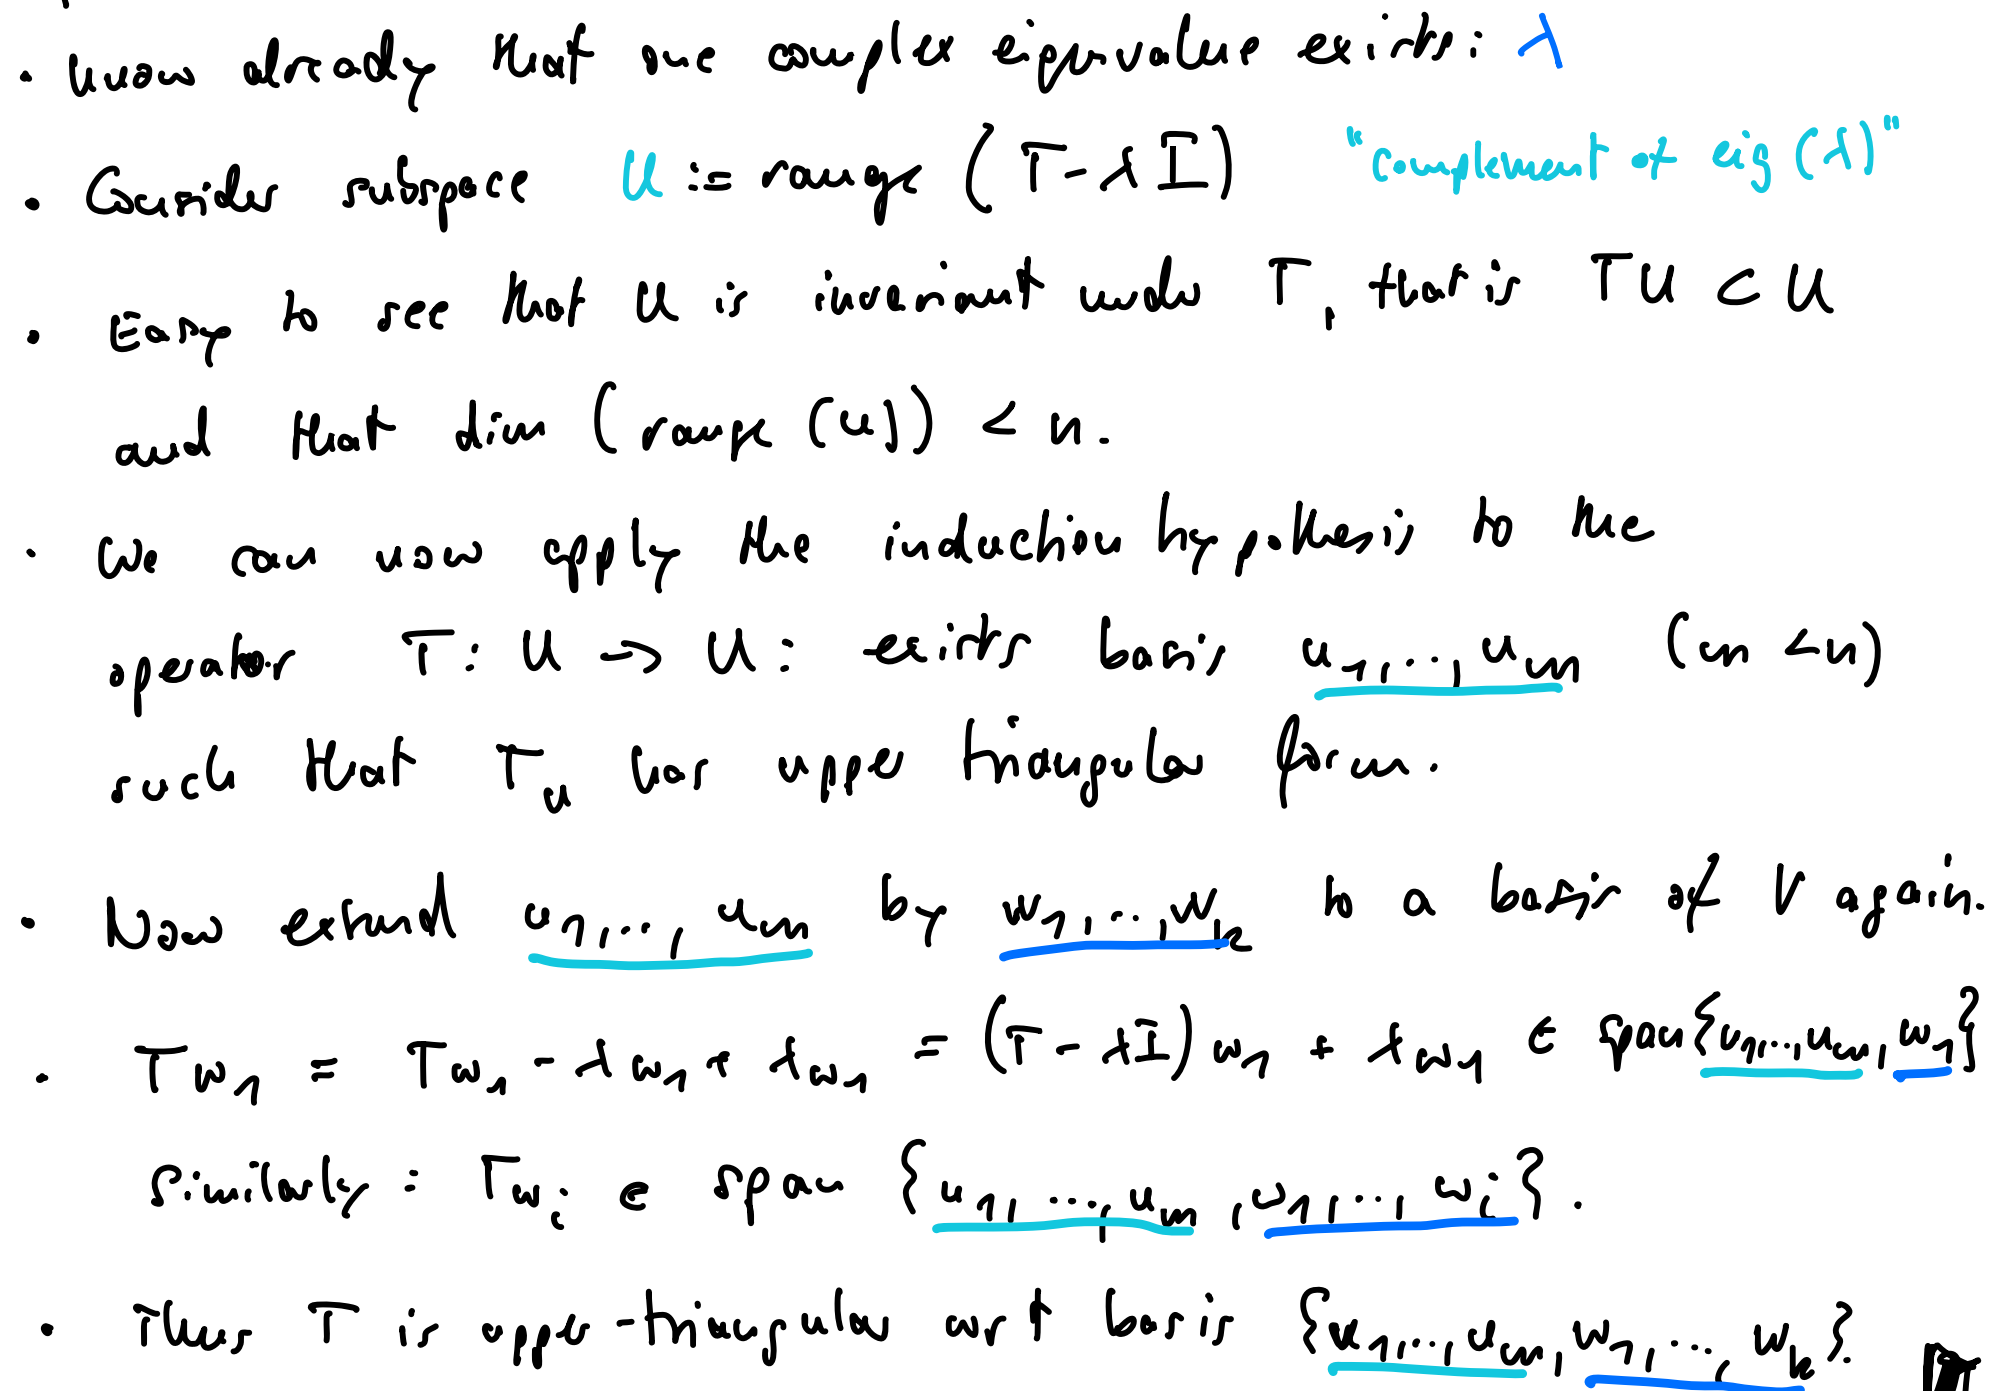 • know already that one complex eigenvalue exists: λ
• Consider subspace U := range (T - λ I) "complement of eig (λ)"
• Easy to see that U is invariant under T, that is TU ⊂ U
and that dim (range (U)) < n.
• We can now apply the induction hypothesis to the
operator T: U -> U: exists basis u₁,..., uₘ (m < n)
such that T_u has upper triangular form.
• Now extend u₁,..., uₘ by w₁,..., wₖ to a basis of V again.
• Tw₁ = Tw₁ - λw₁ + λw₁ = (T - λI) w₁ + λw₁ ∈ span{u₁,..., uₘ, w₁}
Similarly: Twᵢ ∈ span {u₁, ..., uₘ, w₁,..., wᵢ}.
• Thus T is upper-triangular wrt basis {u₁,..., uₘ, w₁,..., wₖ}.